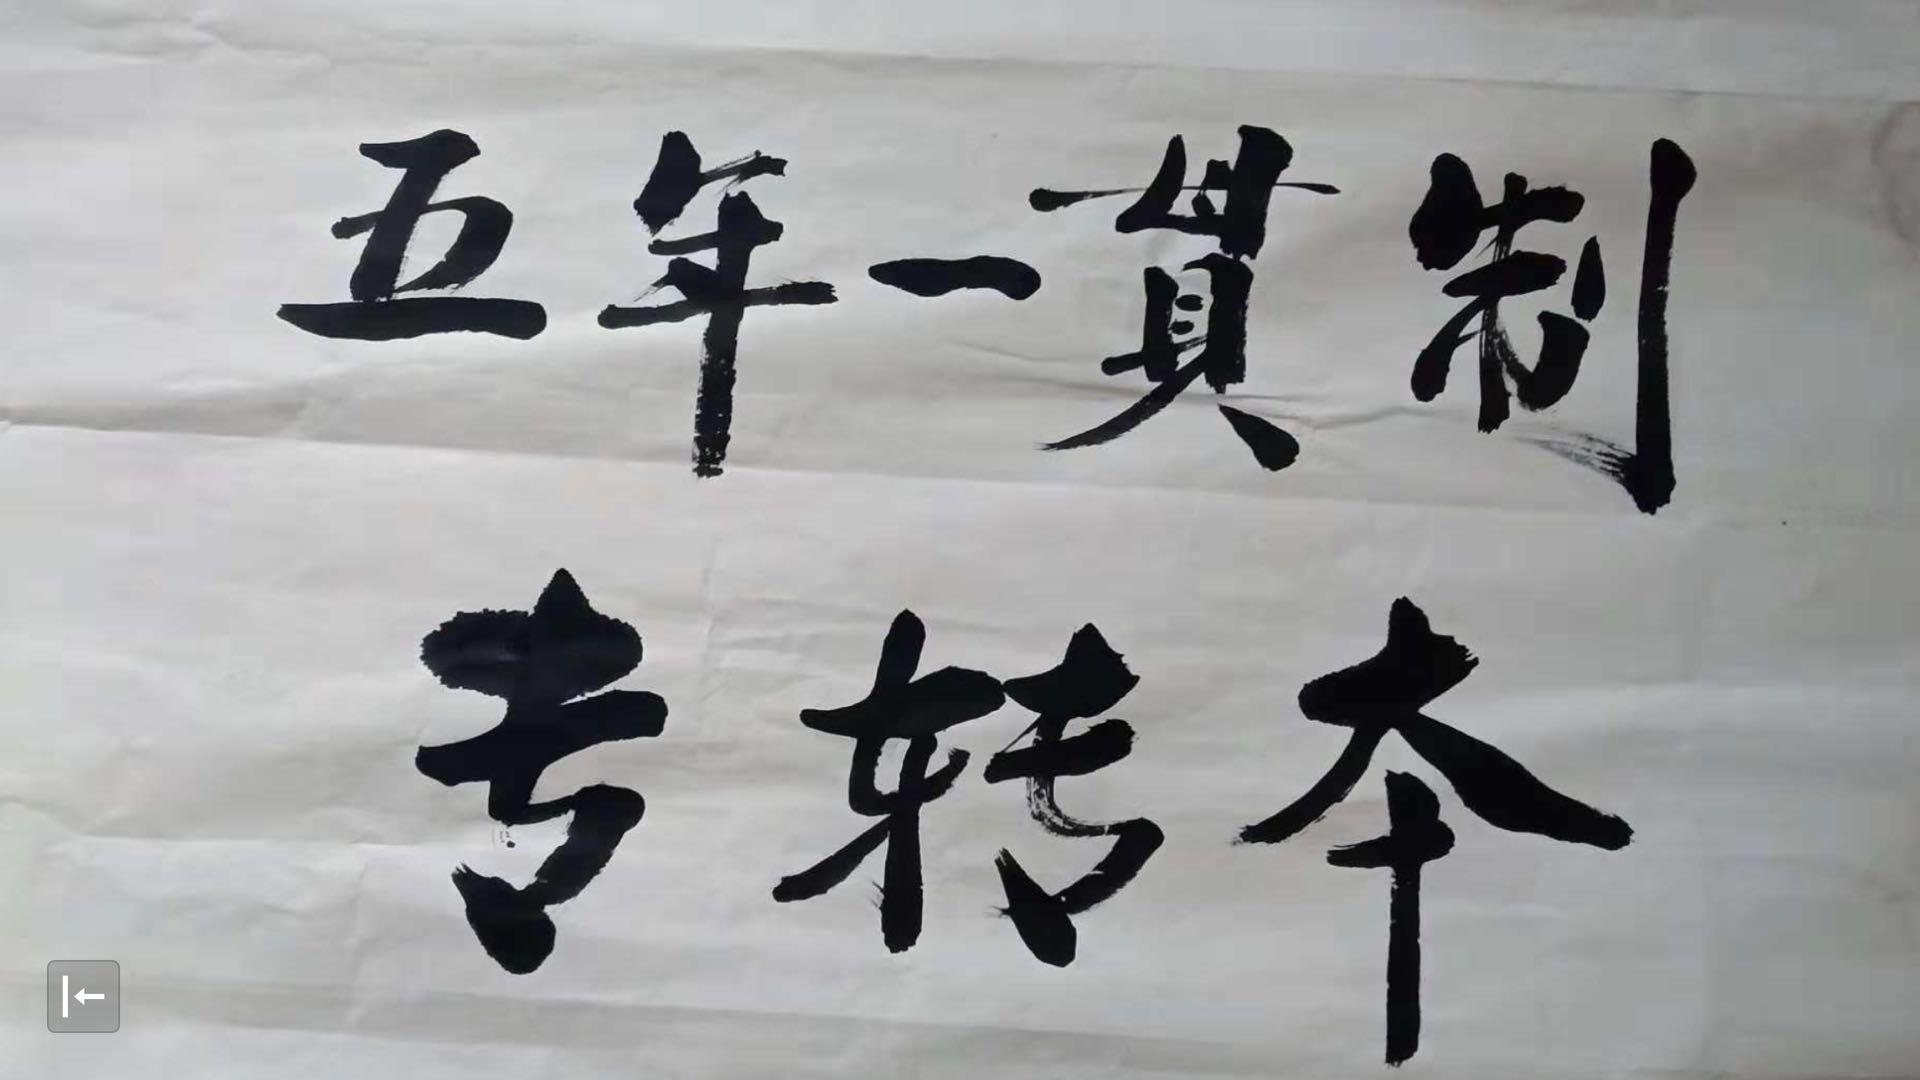 五年一貫制
专转本